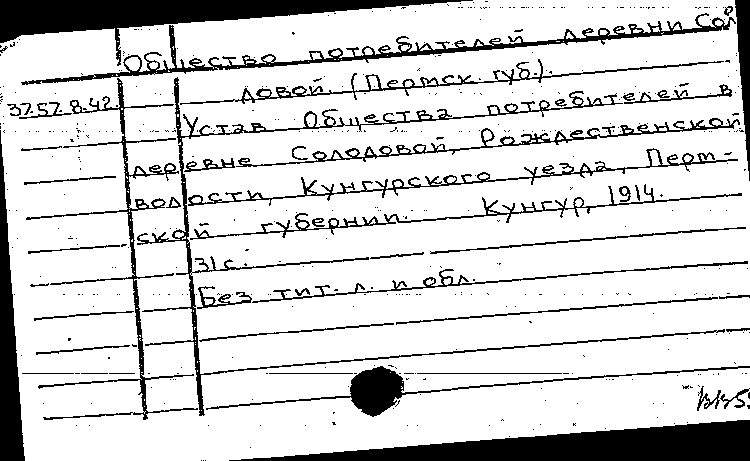 Общество потребителей деревни Соло
довой. (Пермск. губ.).
37.57.8.42
Устав Общества потребителей в
деревне Солодовой, Рождественской
волости, Кунгурского уезда, Перм-
ской губернии. Кунгур, 1914.
31 с.
Без тит. л. и обл.